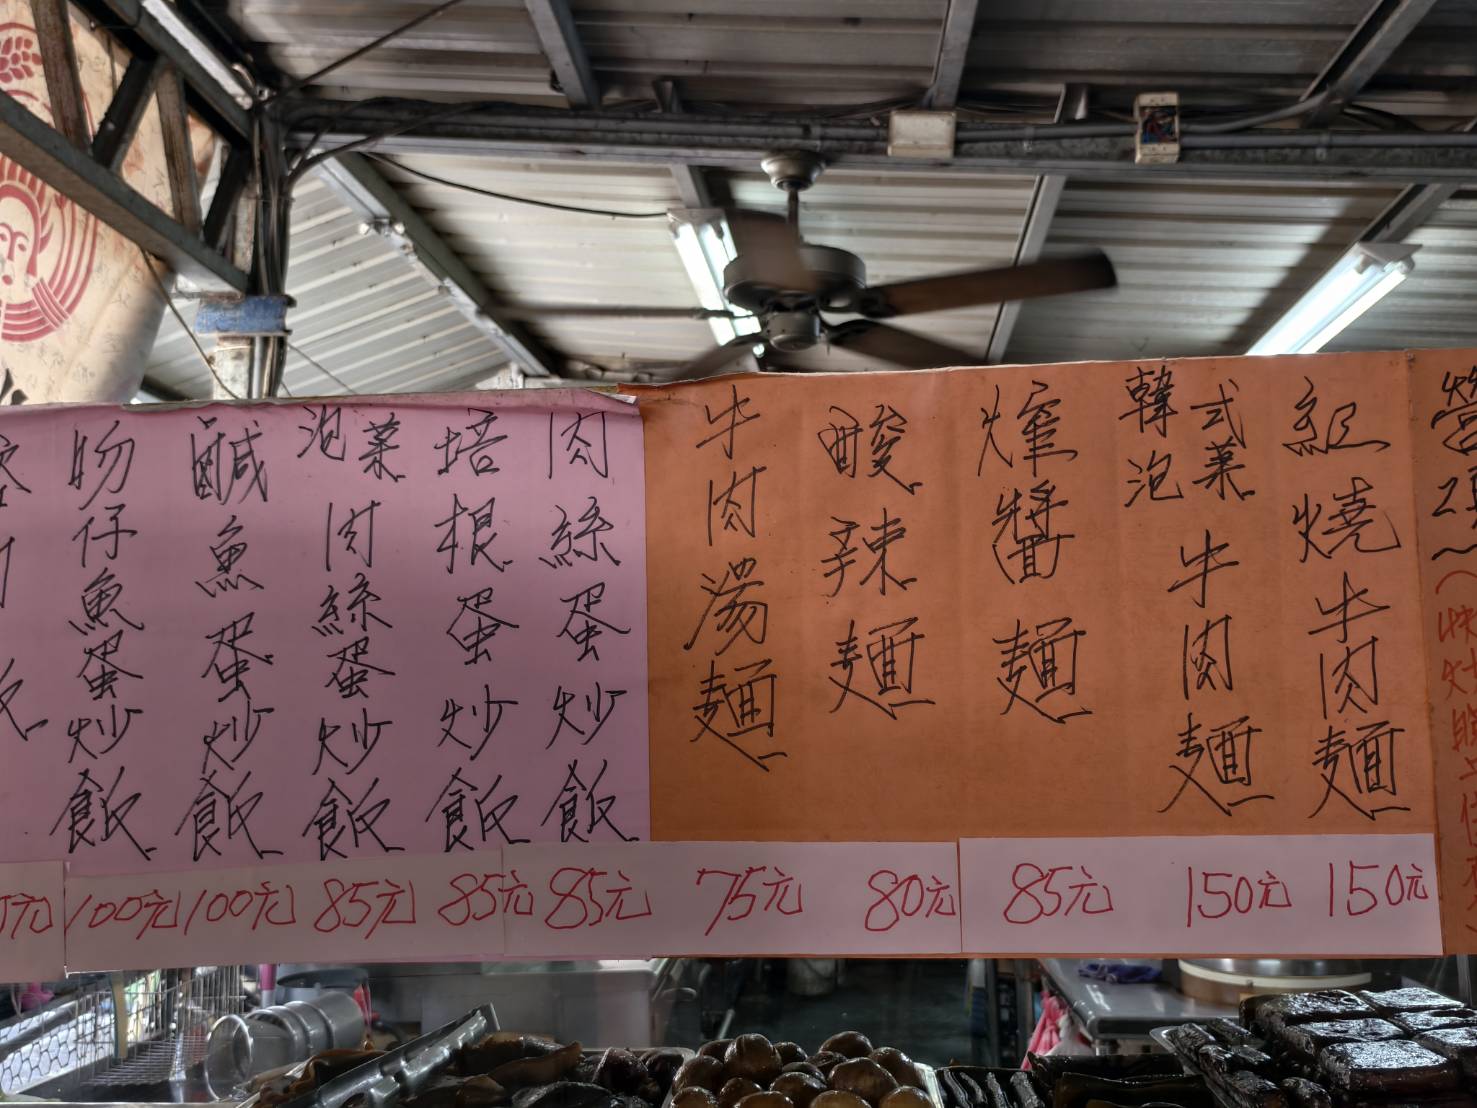 紅燒牛肉麵
150元
韓式泡菜牛肉麵
150元
炸醬麵
85元
酸辣麵
80元
牛肉湯麵
75元
肉絲蛋炒飯
85元
培根蛋炒飯
85元
泡菜肉絲蛋炒飯
85元
鹹魚蛋炒飯
100元
吻仔魚蛋炒飯
100元